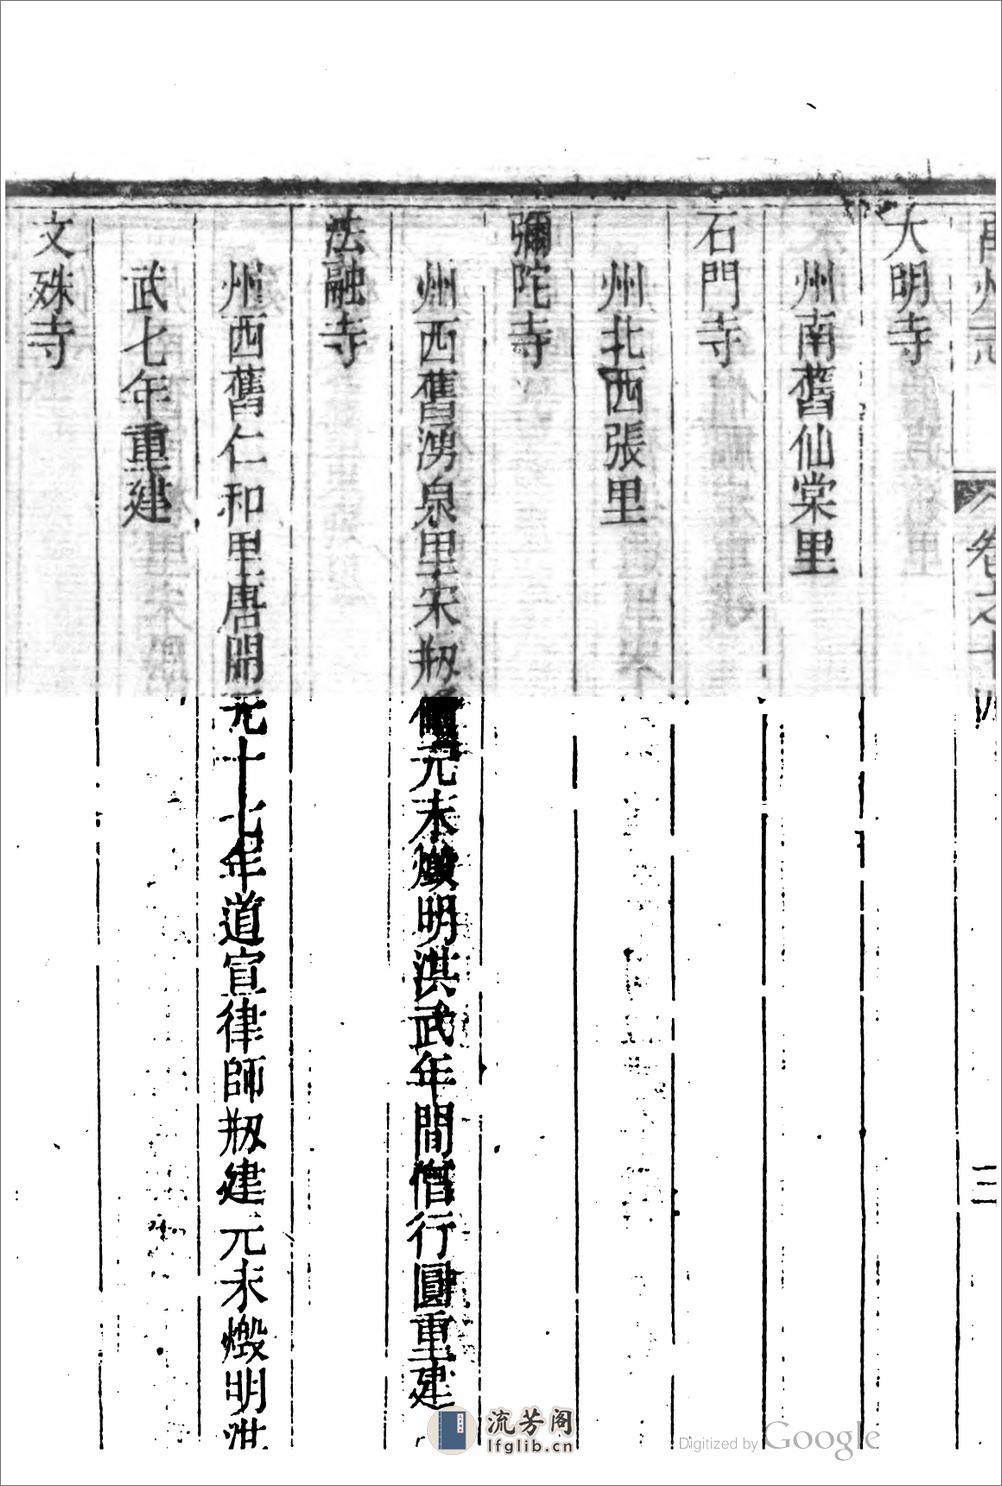 禹州志
卷之十四
三
大明寺
州南舊仙棠里
石門寺
州北西張里
彌陀寺
州西舊湧泉里宋剏建元末燬明洪武年間僧行圓重建
法融寺
州西舊仁和里唐開元十七年道宣律師剏建元末燬明洪
武七年重建
文殊寺
流芳阁
lfglib.cn
Digitized by Google